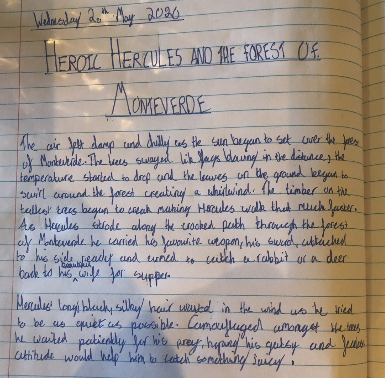 Wednesday 20th May 2020
HEROIC HERCULES AND THE FOREST OF
MONTEVERDE
The air felt damp and chilly as the sun began to set over the forest
of Monteverde. The trees swayed like flags blowing in the distance, the
temperature started to drop and the leaves on the ground began to
swirl around the forest creating a whirlwind. The timber on the
tallest trees began to creak making Hercules walk that much faster.
As Hercules strode along the crooked path through the forest
of Monteverde he carried his favourite weapon, his sword, attached
to his side ready and aimed to catch a rabbit or a deer
back to his beautiful wife for supper.
Hercules' long, black, silky hair wafted in the wind as he tried
to be as quiet as possible. Camouflaged amongst the trees,
he waited patiently for his prey, hoping his gutsy and fearless
attitude would help him to catch something juicy!